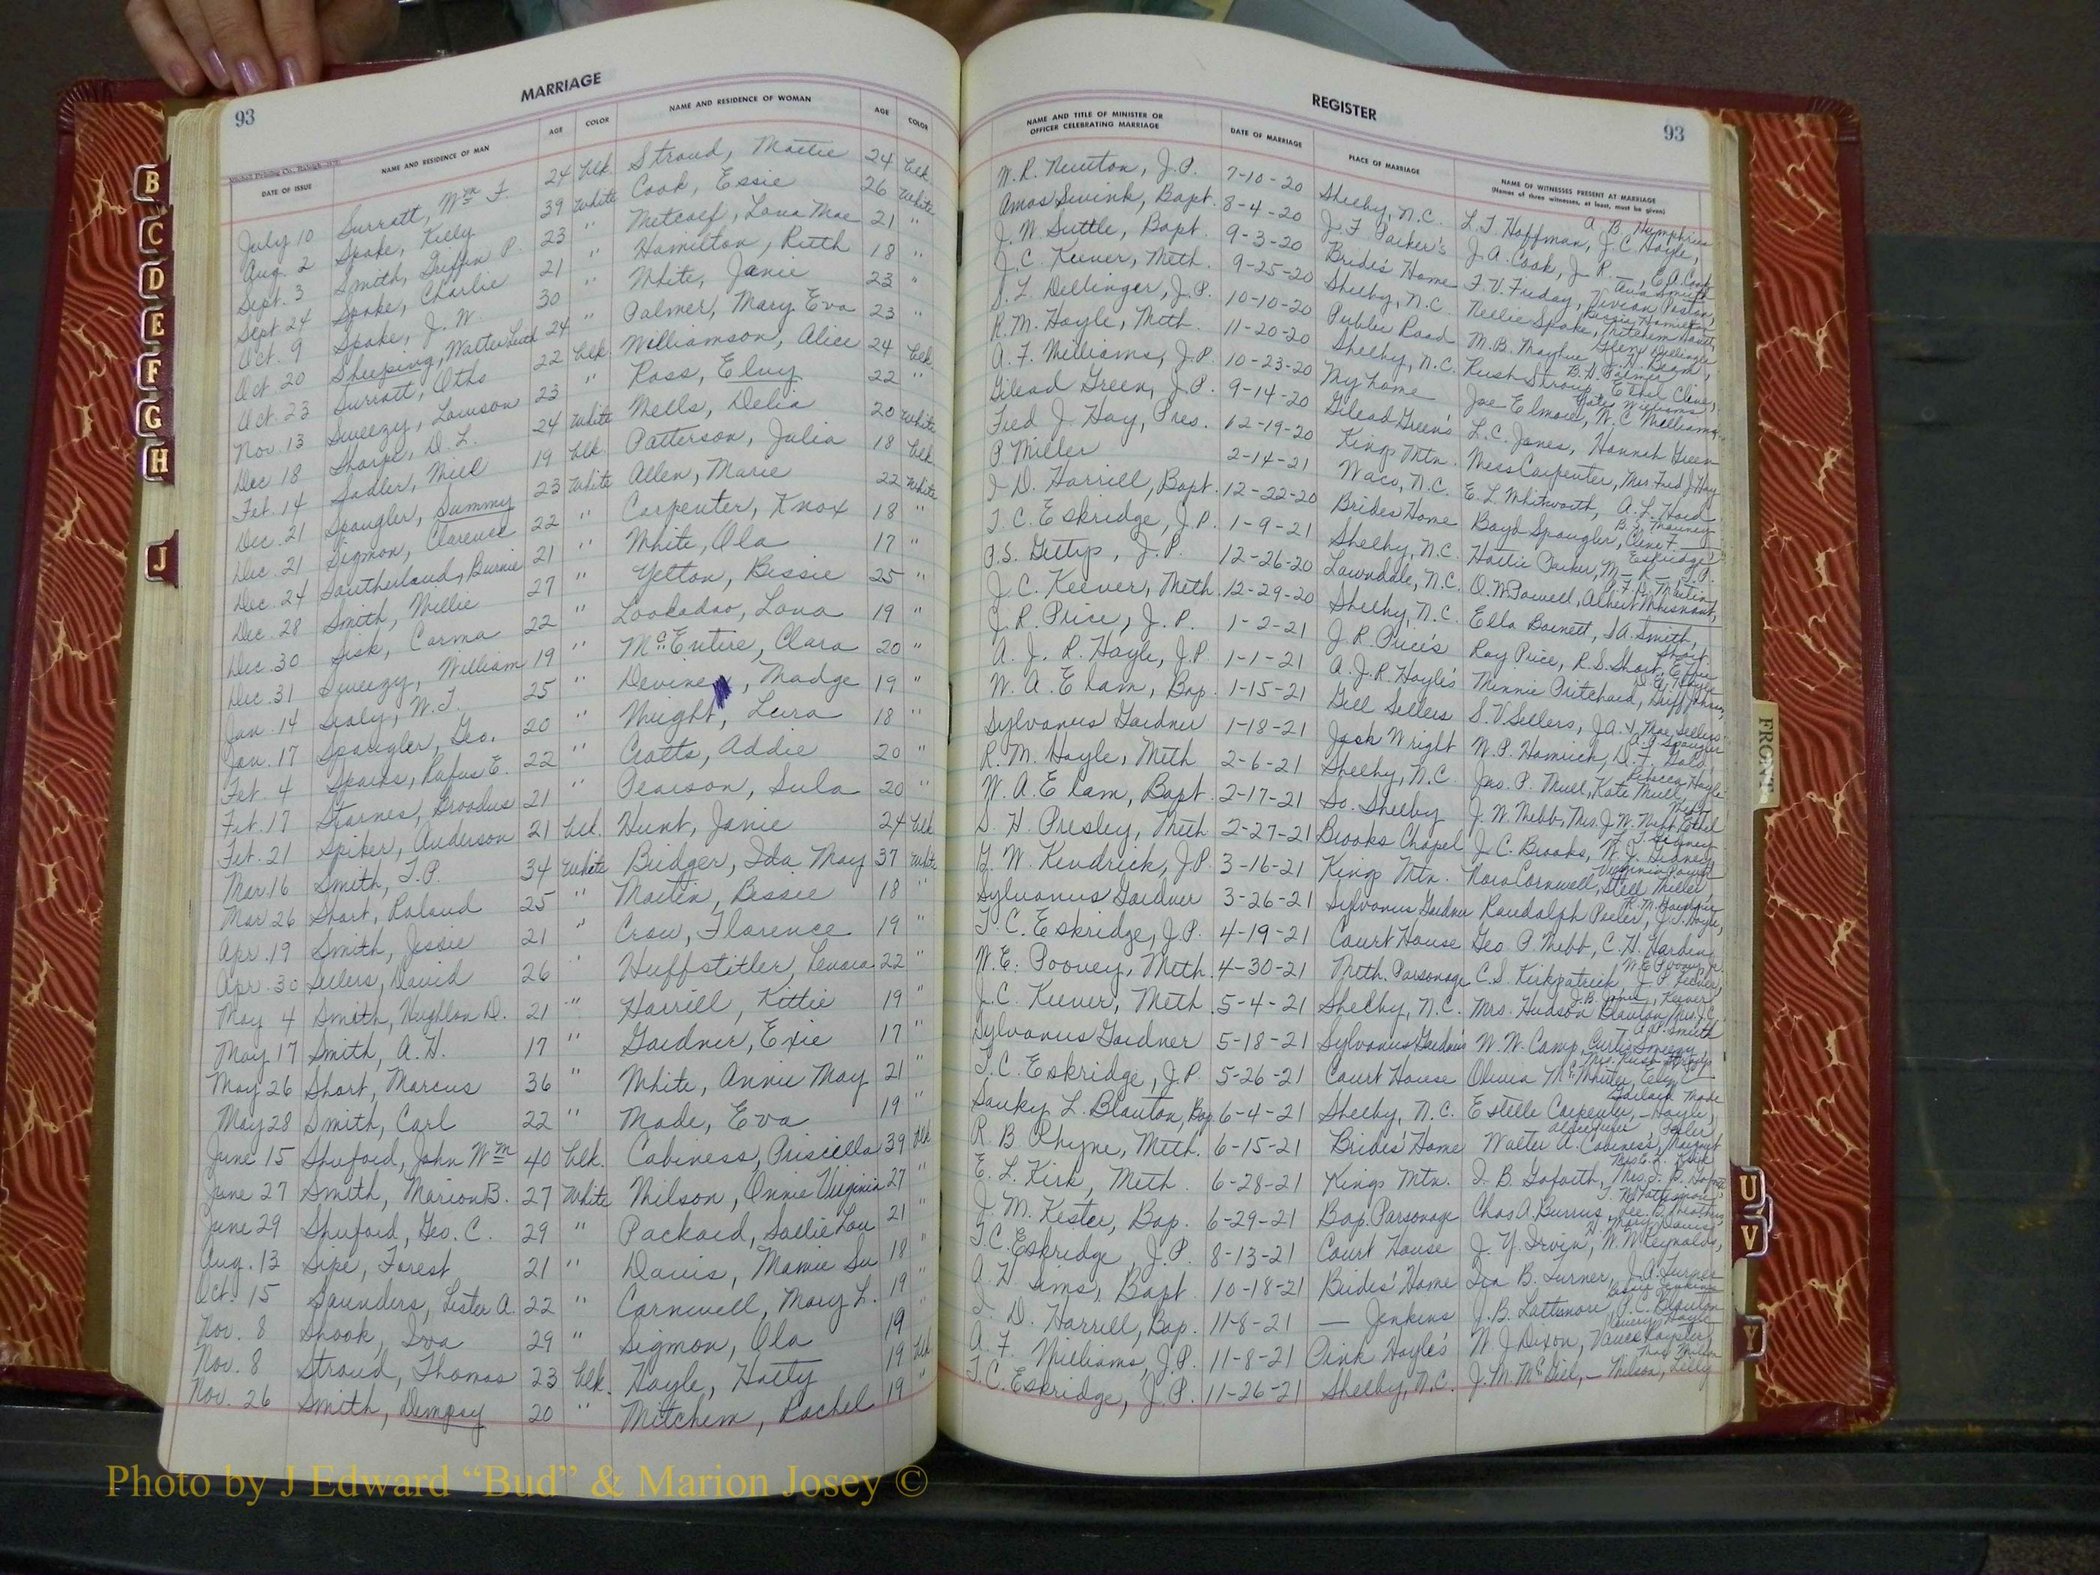 93 MARRIAGE
NAME AND RESIDENCE OF MAN AGE COLOR NAME AND RESIDENCE OF WOMAN AGE COLOR
DATE OF ISSUE
July 10 Surratt, Wm F. 24 Col. Stroud, Mattie 24 Col.
Aug. 2 Spake, Kelly 39 White Cook, Essie 26 White
Sept. 3 Smith, Griffin P. 23 " Metcalf, Lona Mae 21 "
Sept. 24 Spake, Charlie 21 " Hamilton, Ruth 18 "
Oct. 9 Spake, J. W. 30 " White, Janie 23 "
Oct. 20 24 " Palmer, Mary Eva 23 "
Oct. 23 Surratt, Otho 22 Col. Williamson, Alice 24 Col.
Nov. 13 Sweezy, Lawson 23 " Ross, Eluy 22 "
Dec 18 Sharpe, D. L. 24 White Wells, Delia 20 White
Feb. 14 Sadler, 19 Col. Patterson, Julia 18 Col.
Dec. 21 Spangler, Summy 23 White Allen, Marie 22 White
Dec. 21 Sigmon, Clarence 22 " Carpenter, Knox 18 "
Dec. 24 Southerland, Burnie 21 " White, Ola 17 "
Dec. 28 Smith, Willie 27 " Yelton, Bessie 25 "
Dec. 30 Sisk, Carma 22 " Lookadoo, Lona 19 "
Dec. 31 Sweezy, William 19 " McEntire, Clara 20 "
Jan. 14 Sealy, W. T. 25 " Devine, Madge 19 "
Jan. 17 Spangler, Geo. 20 " Wright, Lura 18 "
Feb. 4 Sparks, Rufus E. 22 " Crotts, Addie 20 "
Feb. 17 Starnes, Broadus 21 " Pearson, Sula 20 "
Feb. 21 Spiker, Anderson 21 Col. Hunt, Janie 24 Col.
Mar 16 Smith, T. P. 34 White Bridger, Ida May 37 White
Mar 26 Short, Roland 25 " Martin, Bessie 18 "
Apr. 19 Smith, Jessie 21 " Crow, Florence 19 "
Apr. 30 Sellers, David 26 " Huffstitler, 22 "
May 4 Smith, Hughlon D. 21 " Harrill, Kittie 19 "
May 17 Smith, A. H. 17 " Gardner, Exie 17 "
May 26 Short, Marcus 36 " White, Annie May 21 "
May 28 Smith, Carl 22 " Wade, Eva 19 "
June 15 Shuford, John Wm 40 Col. Cabiness, Priscilla 39 Col.
June 27 Smith, Marion B. 27 White Wilson, Onnie Virginia 27 "
June 29 Shuford, Geo. C. 29 " Packard, Sallie Lou 21 "
Aug. 13 Sipe, Forest 21 " Davis, Mamie Su 18 "
Oct. 15 Saunders, Lester A. 22 " Cornwell, Mary L. 19 "
Nov. 8 Shook, Iva 29 " Sigmon, Ola 19
Nov. 8 Stroud, Thomas 23 Col. Hoyle, Hatty 19 Col.
Nov. 26 Smith, Dempsy 20 " Mitchem, Rachel 19 "
REGISTER 93
NAME AND TITLE OF MINISTER OR OFFICER CELEBRATING MARRIAGE DATE OF MARRIAGE PLACE OF MARRIAGE NAME OF WITNESSES PRESENT AT MARRIAGE
(Names of three witnesses, at least, must be given)
W. R. Newton, J.P. 7-10-20 Shelby, N.C. L. T. Hoffman, J. C. Hoyle, A. B. Humphries
Amos Swink, Bapt. 8-4-20 J. F. Parker's J. A. Cook, J. P.
J. W. Suttle, Bapt. 9-3-20 Bride's Home F. V. Friday, Vivian Poston,
J. C. Keever, Meth. 9-25-20 Shelby, N.C. Nellie Spake, Bessie Hamilton
S. L. Dellinger, J.P. 10-10-20 Public Road M. B. Mayhue,
R. M. Hoyle, Meth. 11-20-20 Shelby, N.C. Rush Stroup, B. H. Palmer
A. F. Williams, J.P. 10-23-20 My home Joe Elmore, W. C. Williams
Gilead Green, J.P. 9-14-20 Gilead Green's L. C. Jones, Hannah Green
Fred J. Hay, Pres. 12-19-20 Kings Mtn. Mrs Fred J. Hay
P Miller 2-14-21 Waco, N.C. E. L. Whitworth, A. L. Hord
I D. Harrill, Bapt. 12-22-20 Brides Home Boyd Spangler,
T. C. Eskridge, J.P. 1-9-21 Shelby, N.C. Hattie Parker,
P. S. Gettys, J.P. 12-26-20 Lawndale, N.C. O. W. Powell, Albert Whisnant,
J. C. Keever, Meth 12-29-20 Shelby, N.C. Ella Barnett, S. A. Smith,
J. R. Price, J. P. 1-2-21 J. R. Price's Roy Price, R. S. Short,
A. J. R. Hoyle, J.P. 1-1-21 A. J. R. Hoyle's Minnie Pritchard, Griff Johnson,
W. A. Elam, Bap. 1-15-21 Gill Sellers S. V. Sellers,
Sylvanus Gardner 1-18-21 Jack Wright W. P. Hamrick,
R. M. Hoyle, Meth 2-6-21 Shelby, N.C. Jas. P. Mull, Kate Mull
W. A. Elam, Bapt. 2-17-21 So. Shelby J. W. Webb, Mrs. J. W. Webb, Ethel
S. H. Presley, Meth 2-27-21 Brooks Chapel J. C. Brooks,
G. W. Kendrick, J.P. 3-16-21 Kings Mtn. Nora Cornwell,
Sylvanus Gardner 3-26-21 Sylvanus Gardner Randolph Peeler,
T. C. Eskridge, J.P. 4-19-21 Court House Geo. P. Webb, C. H. Harding
W. E. Poovey, Meth. 4-30-21 Meth. Parsonage C. S. Kirkpatrick,
J. C. Keever, Meth. 5-4-21 Shelby, N.C. Mrs. Hudson Blanton, Mrs. J. C. Keever
Sylvanus Gardner 5-18-21 Sylvanus Gardner's W. W. Camp, Curtis Sweezy
T. C. Eskridge, J.P. 5-26-21 Court House Olivia McWhirter,
Sanky L. Blanton, Bap 6-4-21 Shelby, N.C. Estelle Carpenter, — Hoyle,
R. B Rhyne, Meth. 6-15-21 Brides' Home Walter A. Cabiness,
E. L. Kirk, Meth 6-28-21 Kings Mtn. I. B. Goforth,
J. M. Kester, Bap. 6-29-21 Bap. Parsonage Chas A. Burrus,
T. C. Eskridge, J.P. 8-13-21 Court House J. Y. Irvin, W. W. Reynolds,
A. H. Sims, Bapt. 10-18-21 Brides' Home Ida B. Turner, J. A. Turner
I. D. Harrill, Bap. 11-8-21 — Jenkins J. B. Lattimore, P. C. Blanton
A. F. Williams, J.P. 11-8-21 Pink Hoyle's W. J. Dixon,
T. C. Eskridge, J.P. 11-26-21 Shelby, N.C. J. M. McGill, — Wilson,
B
C
D
E
F
G
H
J
FRONT
U
V
Y
Photo by J Edward “Bud” & Marion Josey ©